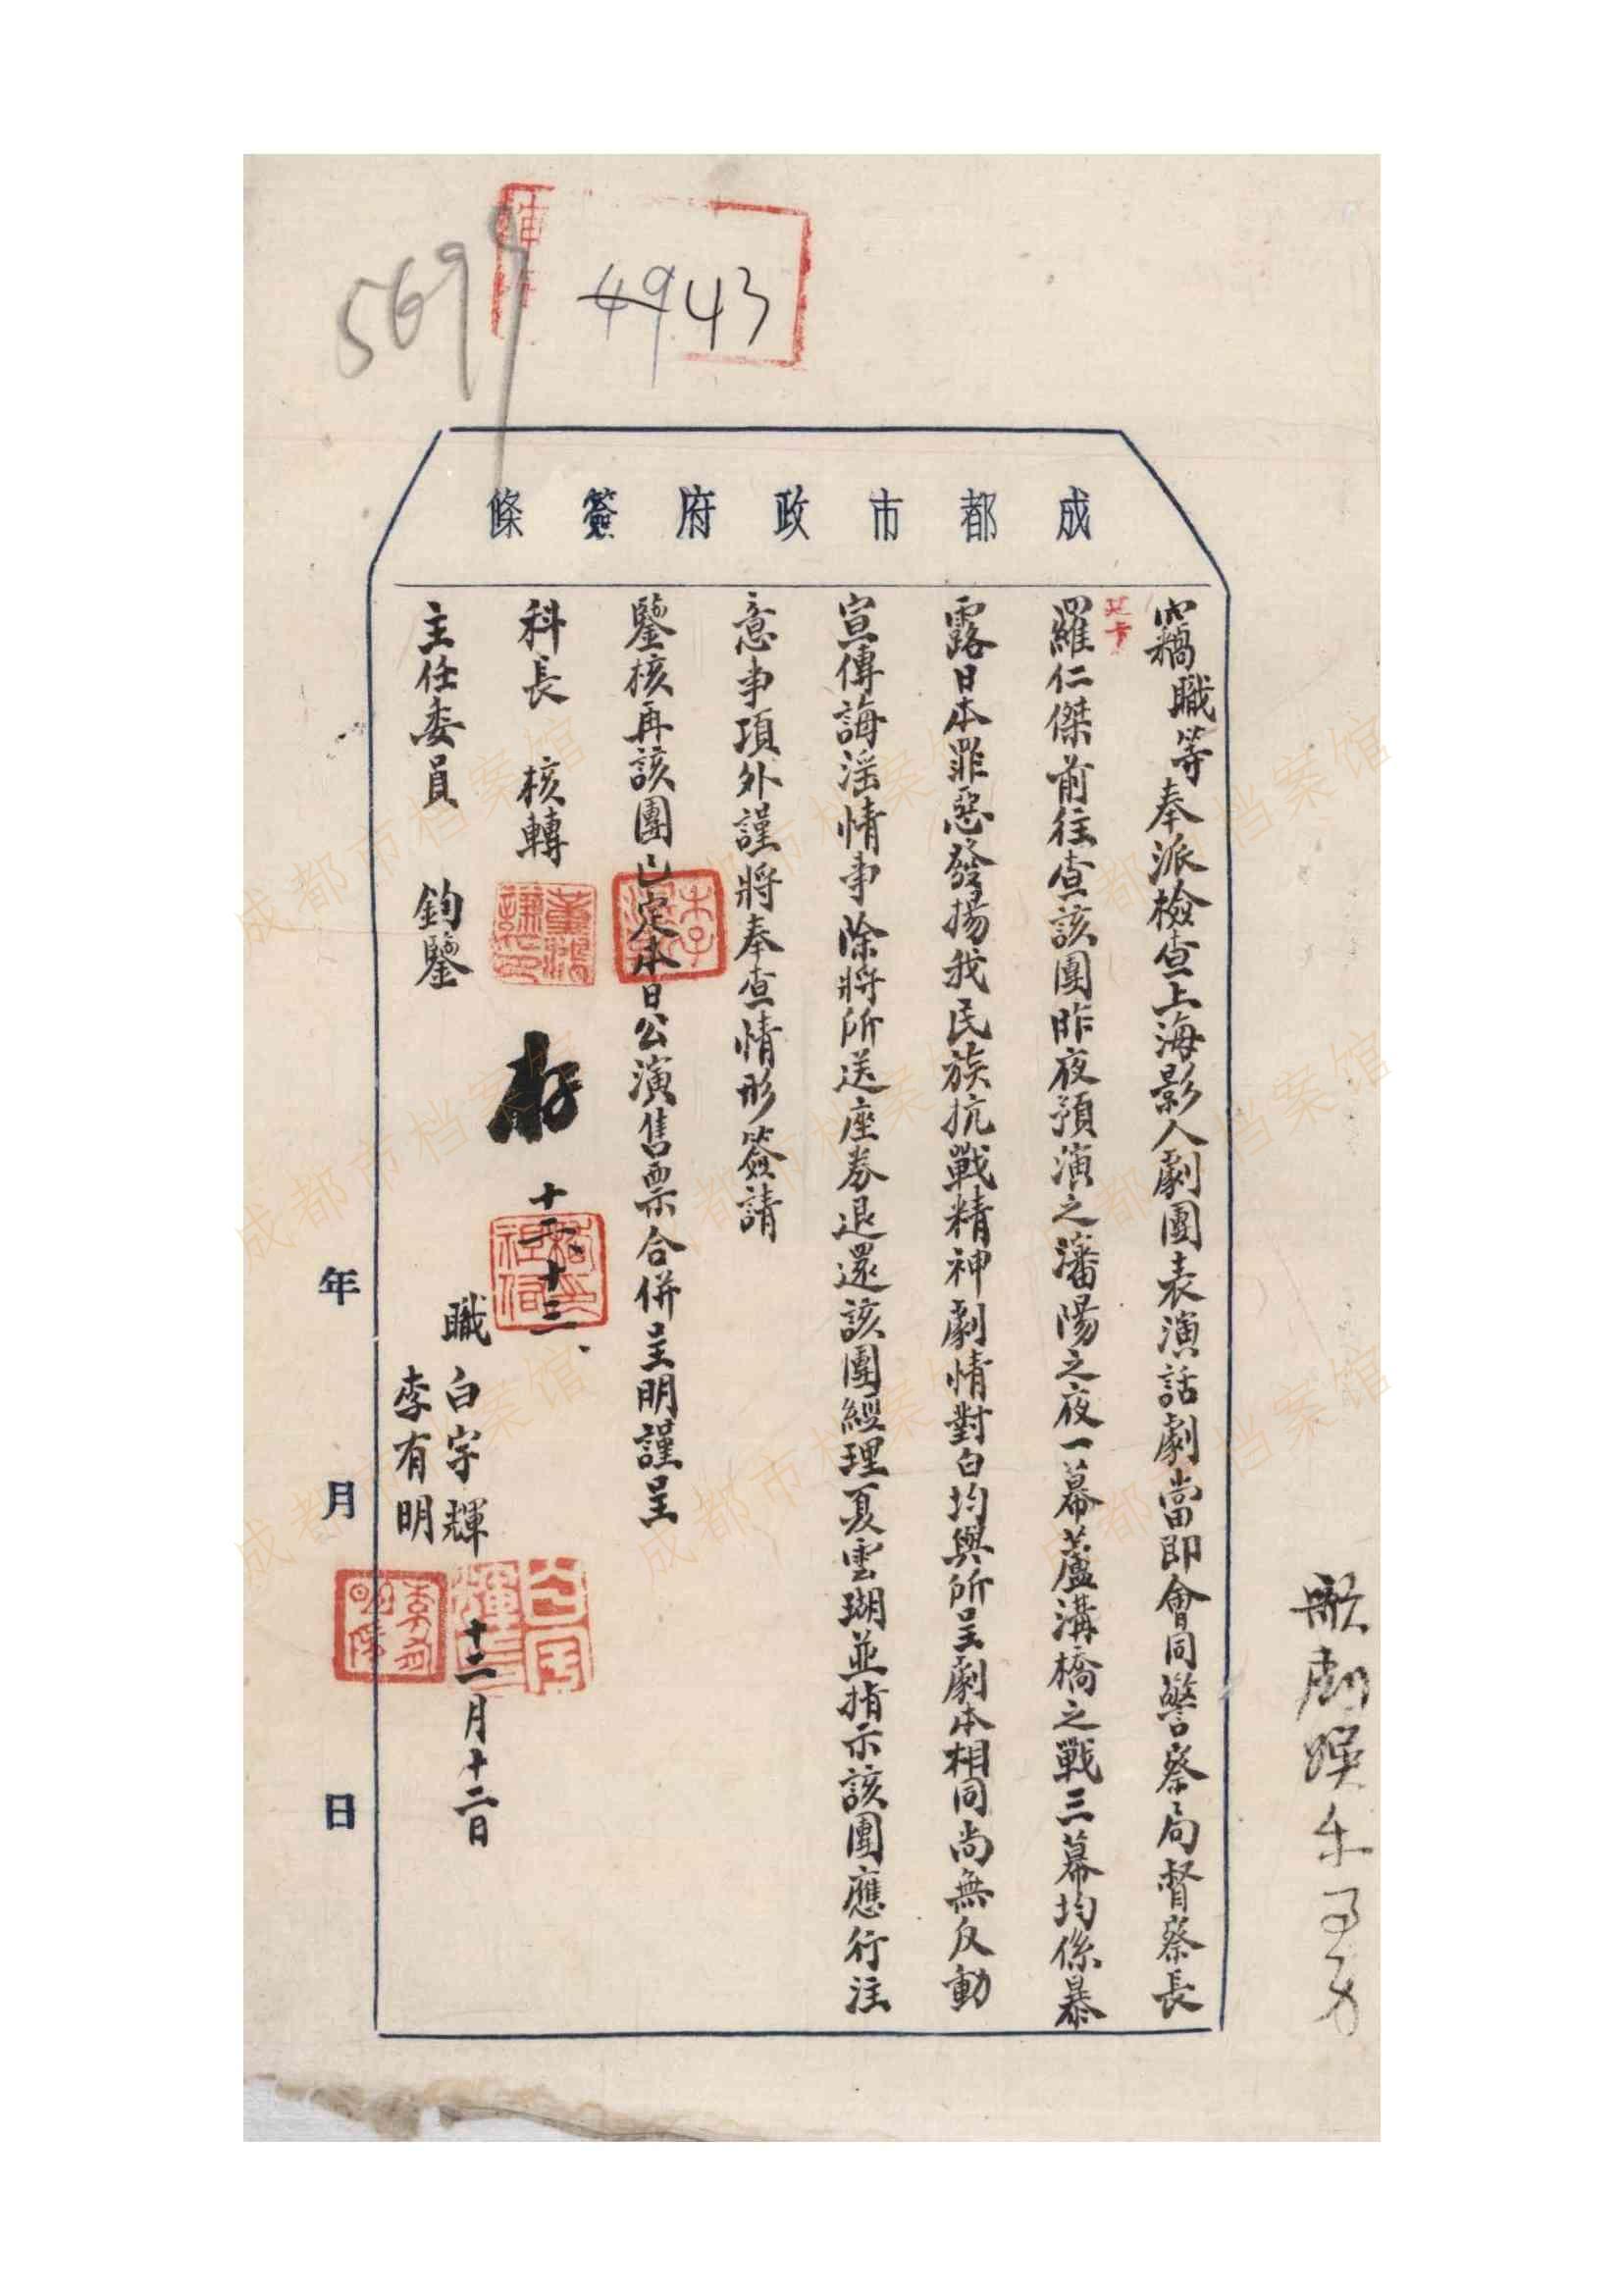 4943
5699
成都市政府簽條
竊職等奉派檢查上海影人劇團表演話劇當即會同警察局督察長
羅仁傑前往查該團昨夜預演之瀋陽之夜一幕蘆溝橋之戰三幕均係暴
露日本罪惡發揚我民族抗戰精神劇情對白均與所呈劇本相同尚無反動
宣傳誨淫情事除將所送座券退還該團經理夏雲瑚並指示該團應行注
意事項外謹將奉查情形簽請
鑒核再該團已定本日公演售票合併呈明謹呈
科長 核轉
主任委員 鈞鑒
存 十二、十三、
職 白宇輝
李有明
十二月十二日
年 月 日
成都市档案馆